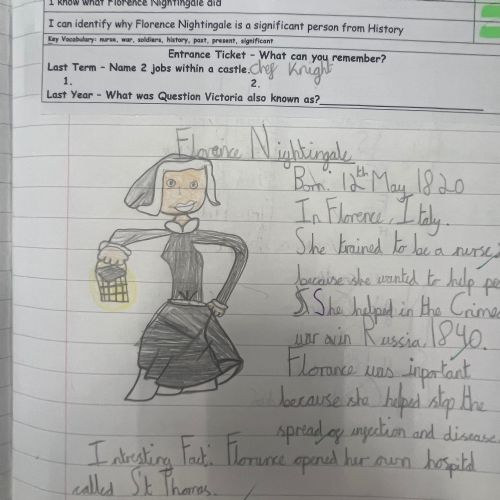 I know what Florence Nightingale did
I can identify why Florence Nightingale is a significant person from History
Key Vocabulary: nurse, war, soldiers, history, past, present, significant
Entrance Ticket - What can you remember?
Last Term - Name 2 jobs within a castle. Chef Knight
1. 2.
Last Year - What was Question Victoria also known as?
Florence Nightingale
Born: 12th May 1820
In Florence, Italy.
She trained to be a nurse
because she wanted to help pe
She helped in the Crimea
war in Russia, 1840.
Florance was inportant
because she helped stop the
spread of injection and disease
Intresting Fact: Florance opened her own hospital
called St Thomas.